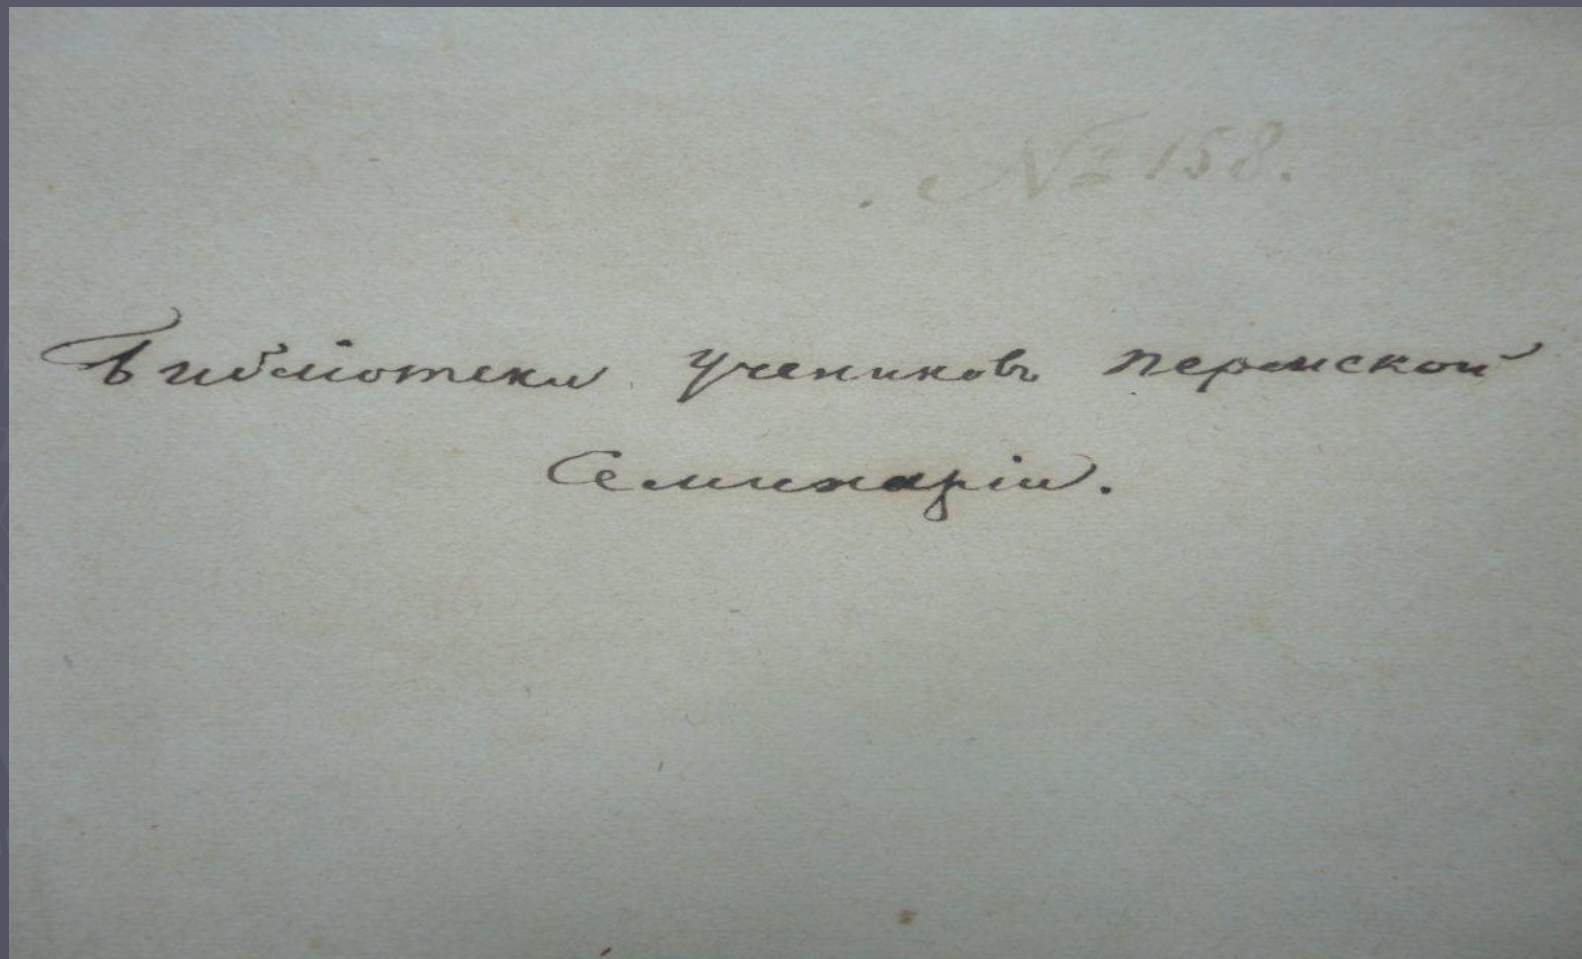 № 158.
Библіотеки учениковъ пермской
Семинаріи.